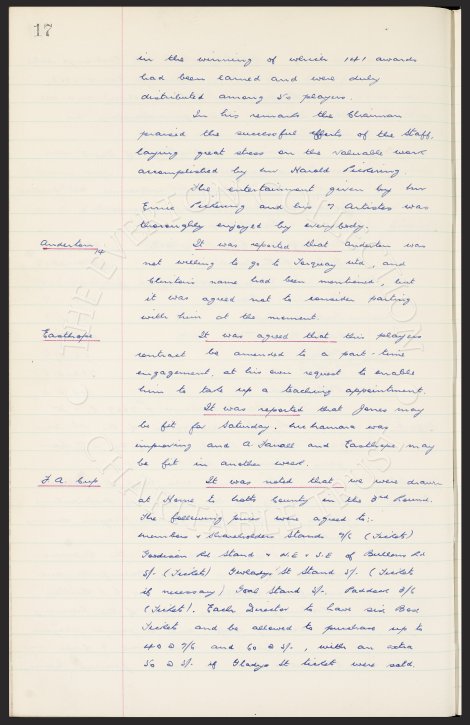 17
in the winning of which 141 awards
had been earned and were duly
distributed among 50 players.
In his remarks the Chairman
praised the successful efforts of the Staff,
laying great stress on the valuable work
accomplished by Mr Harold Pickering.
The entertainment given by Mr
Ernie Pickering and his 7 Artistes was
thoroughly enjoyed by everybody.
Anderton It was reported that Anderton was
not willing to go to Torquay Utd, and
Clinton's name had been mentioned, but
it was agreed not to consider parting
with him at the moment.
Easthope It was agreed that this players
contract be amended to a part-time
engagement, at his own request to enable
him to take up a teaching appointment.
It was reported that Jones may
be fit for Saturday. McNamara was
improving and A Farrall and Easthope, may
be fit in another week.
F.A. Cup It was noted that we were drawn
at Home to Notts County in the 3rd Round.
The following prices were agreed to:-
Members & Shareholders Stands 7/6 (Tickets)
Goodison Rd Stand & N.E & S.E of Bullens Rd
5/- (Tickets) Gwladys St Stand 5/- (Tickets
if necessary) Goal Stand 5/-. Paddock 3/6
(Tickets). Each Director to have six Box
Tickets and be allowed to purchase up to
40 @ 7/6 and 60 @ 5/-, with an extra
50 @ 5/- if Gladys St ticket were sold.